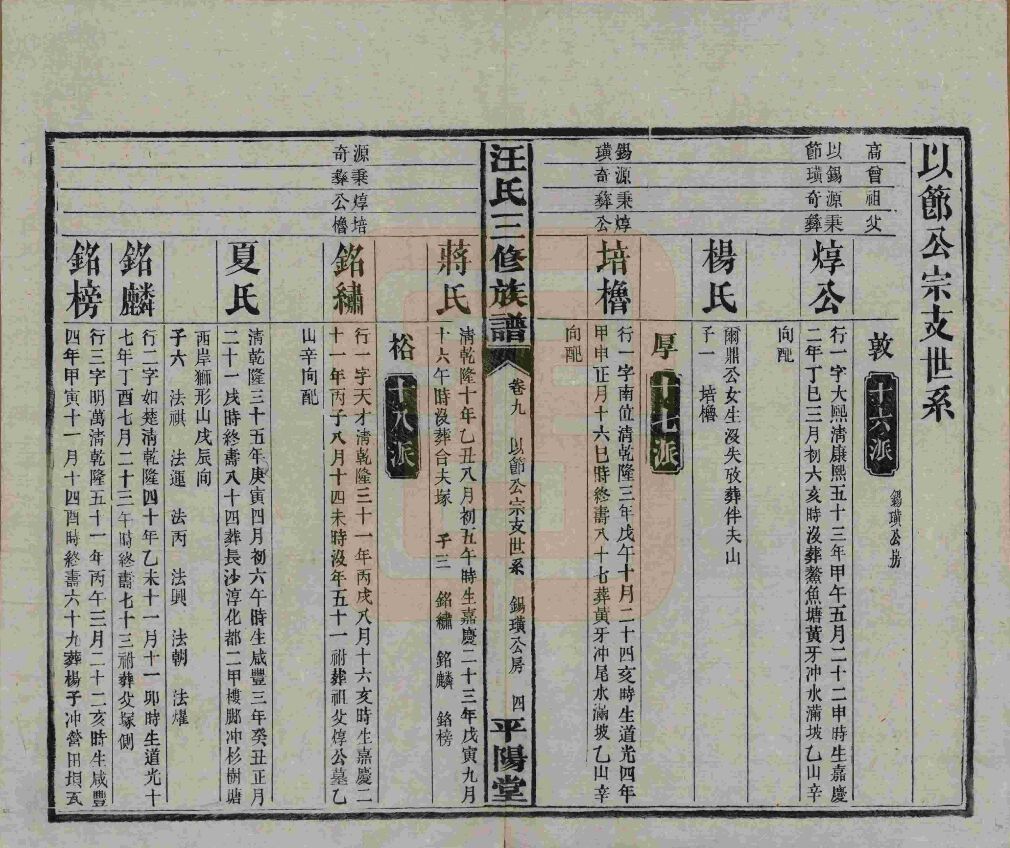 以節公宗支世系
高曾祖父
敦
十六派
錫璜公房
以錫源秉
節璜奇彝
焞公
行一字大熙清康熙五十三年甲午五月二十二申時生嘉慶
二年丁巳三月初六亥時沒葬鰲魚塘黃牙冲水滿坡乙山辛
向配
楊氏
爾鼎公女生沒失攷葬伴夫山
子一　培櫓
厚
十七派
錫源秉焞
璜奇彝公
培櫓
行一字南位清乾隆三年戊午十月二十四亥時生道光四年
甲申正月十六巳時終壽八十七葬黃牙冲尾水滿坡乙山辛
向配
汪氏三修族譜
卷九　以節公宗支世系　錫璜公房　四
平陽堂
蔣氏
清乾隆十年乙丑八月初五午時生嘉慶二十三年戊寅九月
十六午時沒葬合夫塚　子三　銘繡　銘麟　銘榜
裕
十八派
源秉焞培
奇彝公櫓
銘繡
行一字天才清乾隆三十一年丙戌八月十六亥時生嘉慶二
十一年丙子八月十四未時沒年五十一祔葬祖父焞公墓乙
山辛向配
夏氏
清乾隆三十五年庚寅四月初六午時生咸豐三年癸丑正月
二十一戌時終壽八十四葬長沙淳化都二甲樓腳冲杉樹塘
西岸獅形山戌辰向
子六　法祺　法運　法丙　法興　法朝　法燿
銘麟
行二字如楚清乾隆四十年乙未十一月十一卯時生道光十
七年丁酉七月二十三午時終壽七十三祔葬父塚側
銘榜
行三字明萬清乾隆五十一年丙午三月二十二亥時生咸豐
四年甲寅十一月十四酉時終壽六十九葬楊子冲營田垻亥